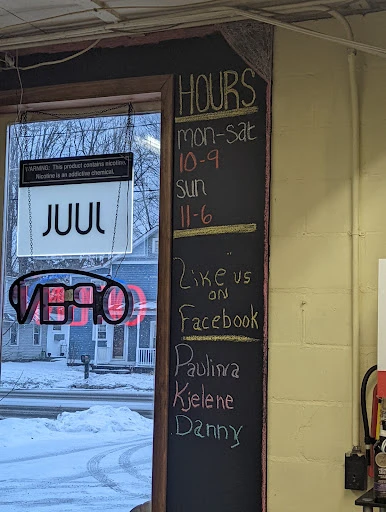 WARNING: This product contains nicotine.
Nicotine is an addictive chemical.
JUUL
OPEN
HOURS
mon-sat
10-9
sun
11-6
Like us
on
Facebook
Paulina
Kjelene
Danny